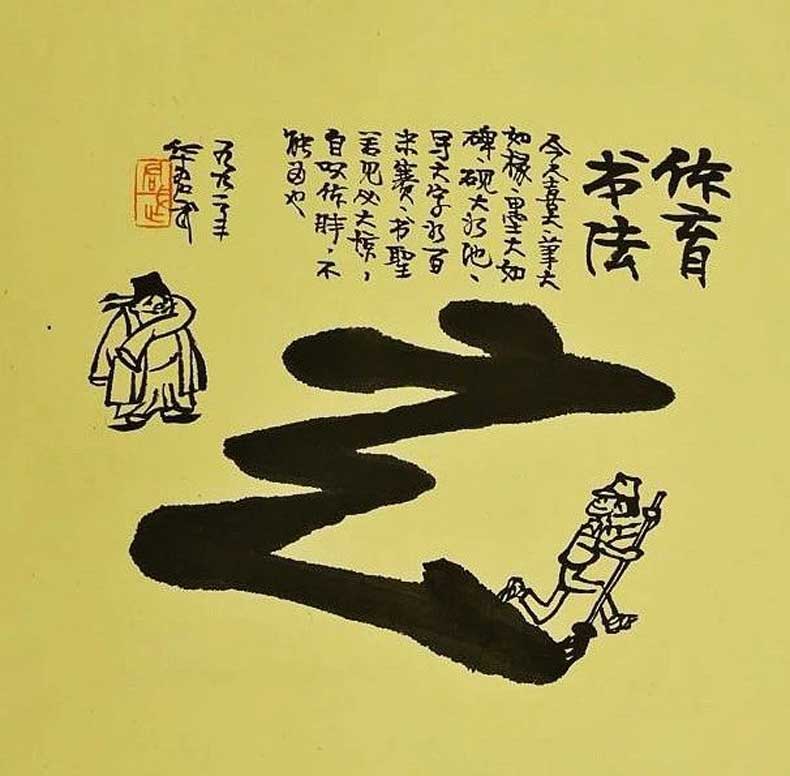 体育
书法
今人喜大、筆大
如椽、墨大如
碑、砚大如池、
写大字如百
米赛、书圣
若见必大惊，
自叹体胖，不
能为也、
华君武
君武
之